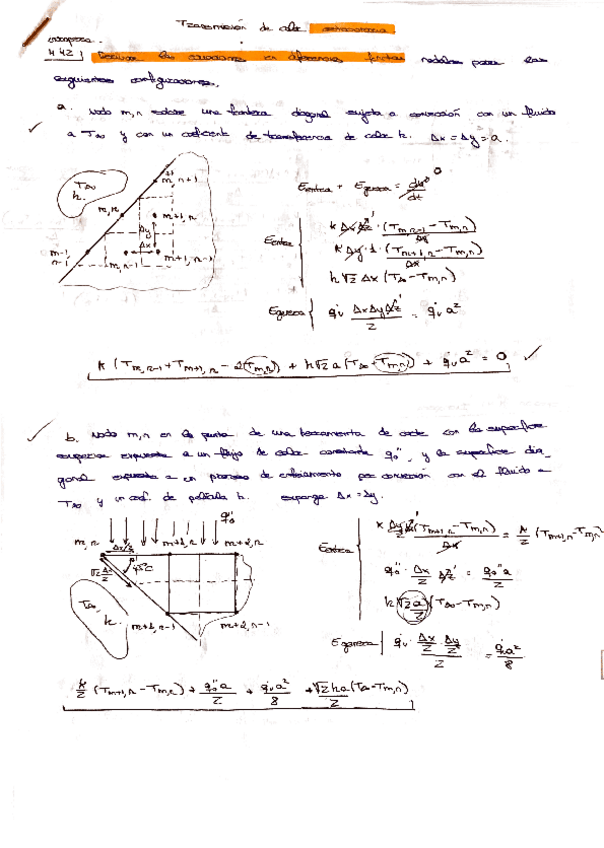 Transmisión de calor
incropera.
4.42 Derivar las ecuaciones en diferencias finitas nodales para las
siguientes configuraciones.
a. Nodo m,n sobre una frontera diagonal sujeta a convección con un fluido
a T∞ y con un coeficiente de transferencia de calor h. Δx = Δy = a.
T∞
h.
m, n+1
m, n
m+1, n
Δy
Δx
m-1
n-1
m, n-1
m+1, n-1
Eentra + Egenera = du/dt 0
Eentra
k Δx Δz 1 · (Tm,n-1 - Tm,n) / Δy
k Δy · 1 · (Tm+1,n - Tm,n) / Δx
h √2 Δx (T∞ - Tm,n)
Egenera { q̇v Δx Δy Δz 1 / 2 = q̇v a²
k (Tm,n-1 + Tm+1,n - 2 Tm,n) + h √2 a (T∞ - Tm,n) + q̇v a² = 0
b. Nodo m,n en la punta de una herramienta de corte con la superficie
superior expuesta a un flujo de calor constante q̇o'', y la superficie dia-
gonal expuesta a un proceso de enfriamiento por convección con el fluido a
T∞ y un coef. de película h. suponga Δx = Δy.
q̇o''
m, n
Δx/2
m+1, n
m+2, n
√2 Δx/2
45°
T∞,
h.
m+1, n-1
m+2, n-1
Eentra
k Δy/2 Δz 1 (Tm+1,n - Tm,n) / Δx = k/2 (Tm+1,n - Tm,n)
q̇o'' · Δx/2 · Δz 1 = q̇o'' a / 2
h (√2 a / 2) (T∞ - Tm,n)
Egenera | q̇v · Δx/2 · Δy/2 / 2 = q̇ a² / 8
k/2 (Tm+1,n - Tm,n) + q̇o'' a / 2 + q̇v a² / 8 + √2 h a / 2 (T∞ - Tm,n)